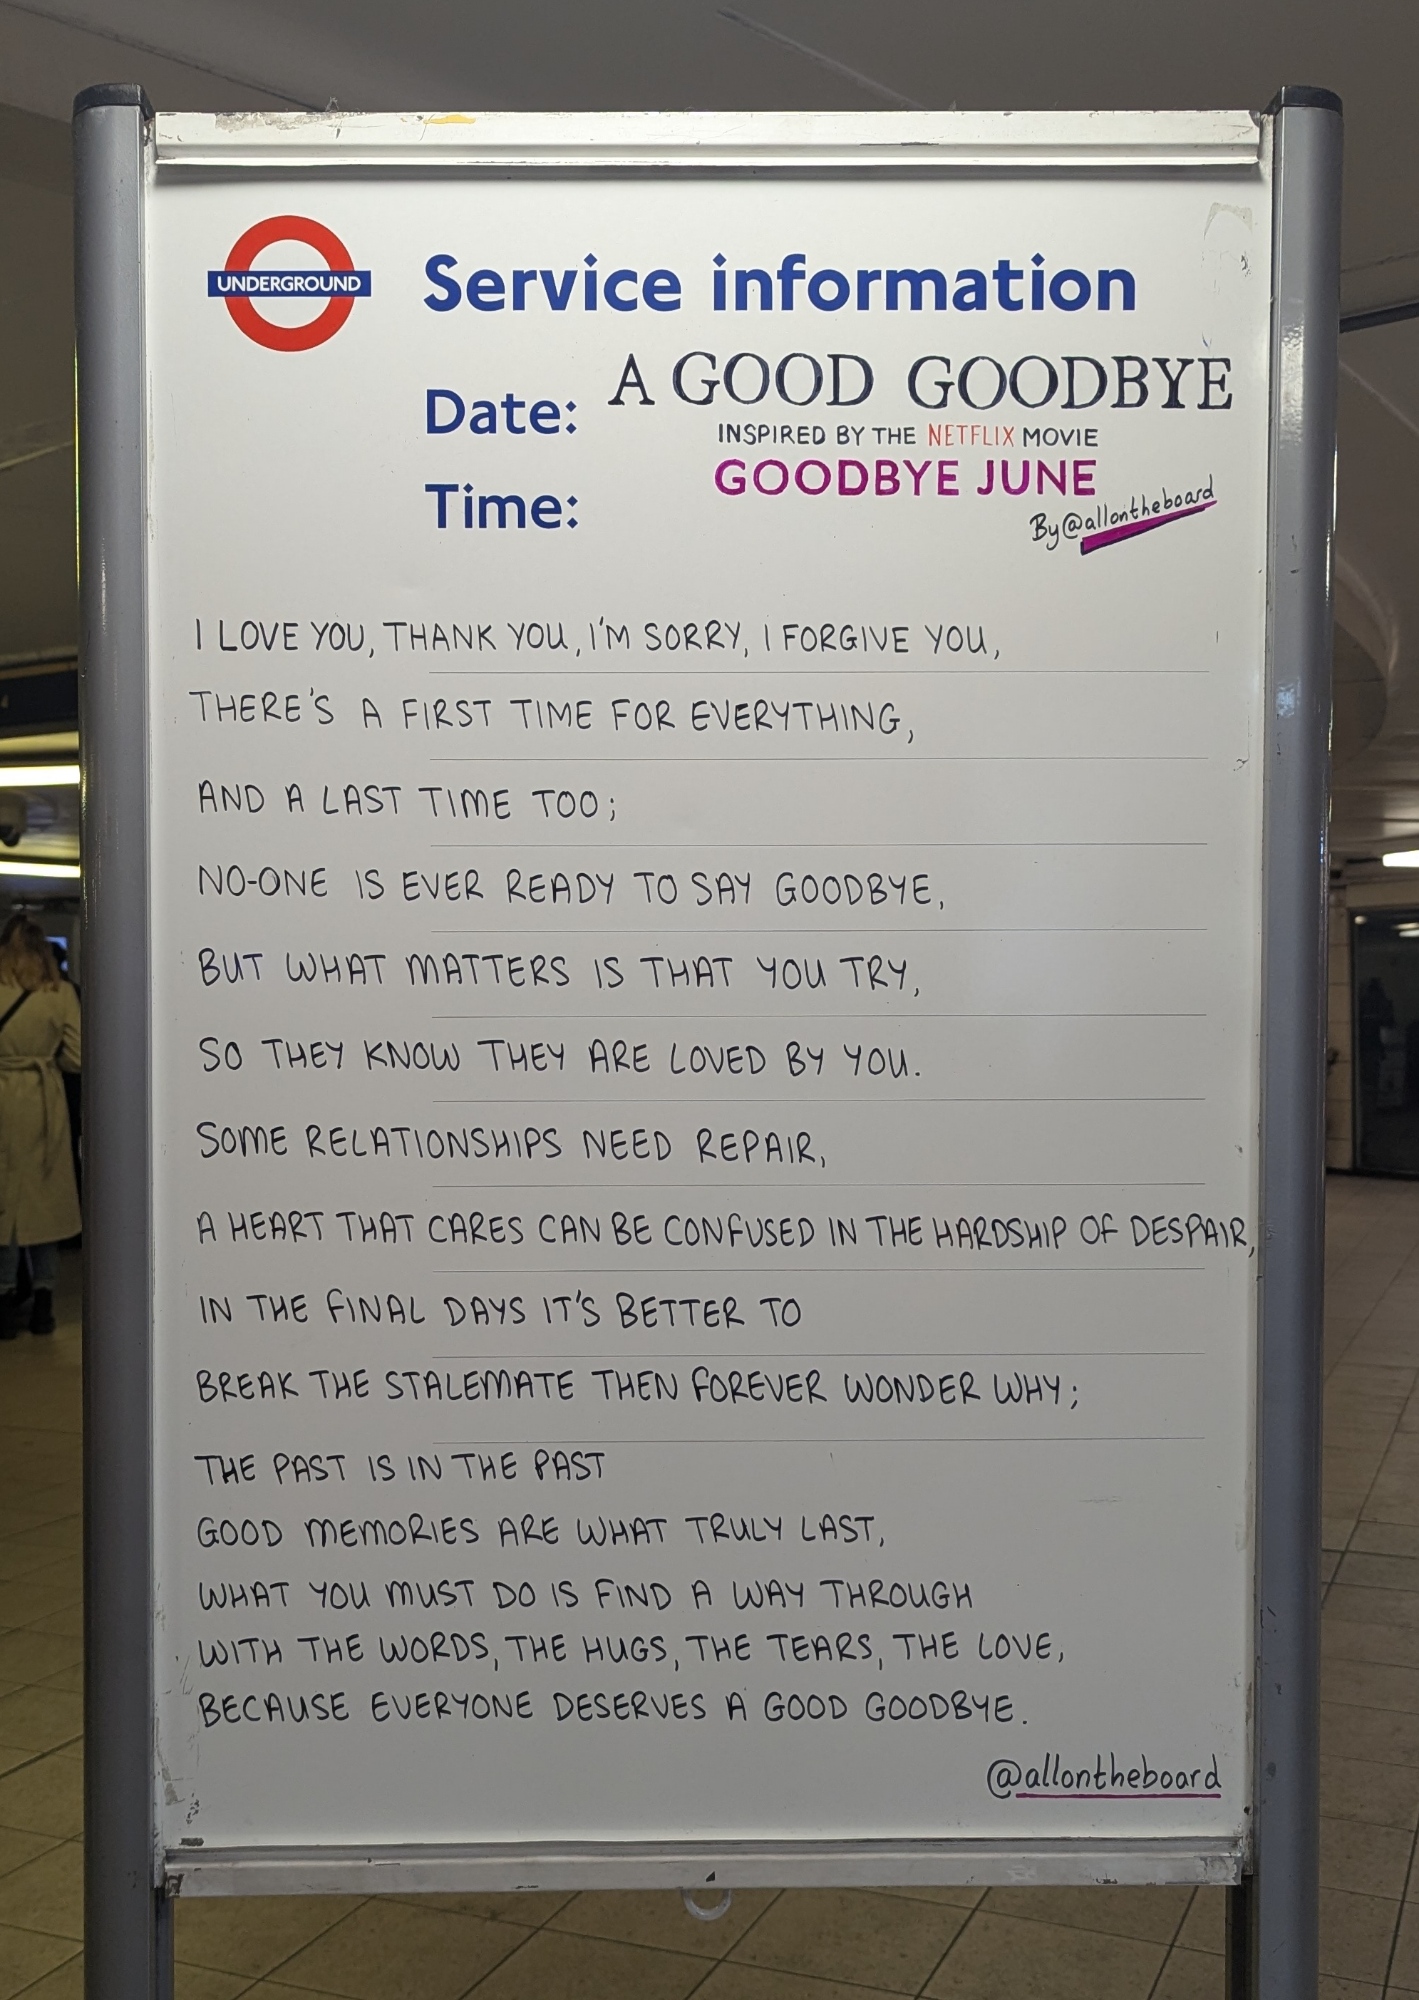 UNDERGROUND
Service information
Date:
A GOOD GOODBYE
INSPIRED BY THE NETFLIX MOVIE
GOODBYE JUNE
Time:
By @allontheboard
I LOVE YOU, THANK YOU, I'M SORRY, I FORGIVE YOU,
THERE'S A FIRST TIME FOR EVERYTHING,
AND A LAST TIME TOO;
NO-ONE IS EVER READY TO SAY GOODBYE,
BUT WHAT MATTERS IS THAT YOU TRY,
SO THEY KNOW THEY ARE LOVED BY YOU.
SOME RELATIONSHIPS NEED REPAIR,
A HEART THAT CARES CAN BE CONFUSED IN THE HARDSHIP OF DESPAIR,
IN THE FINAL DAYS IT'S BETTER TO
BREAK THE STALEMATE THEN FOREVER WONDER WHY;
THE PAST IS IN THE PAST
GOOD MEMORIES ARE WHAT TRULY LAST,
WHAT YOU MUST DO IS FIND A WAY THROUGH
WITH THE WORDS, THE HUGS, THE TEARS, THE LOVE,
BECAUSE EVERYONE DESERVES A GOOD GOODBYE.
@allontheboard